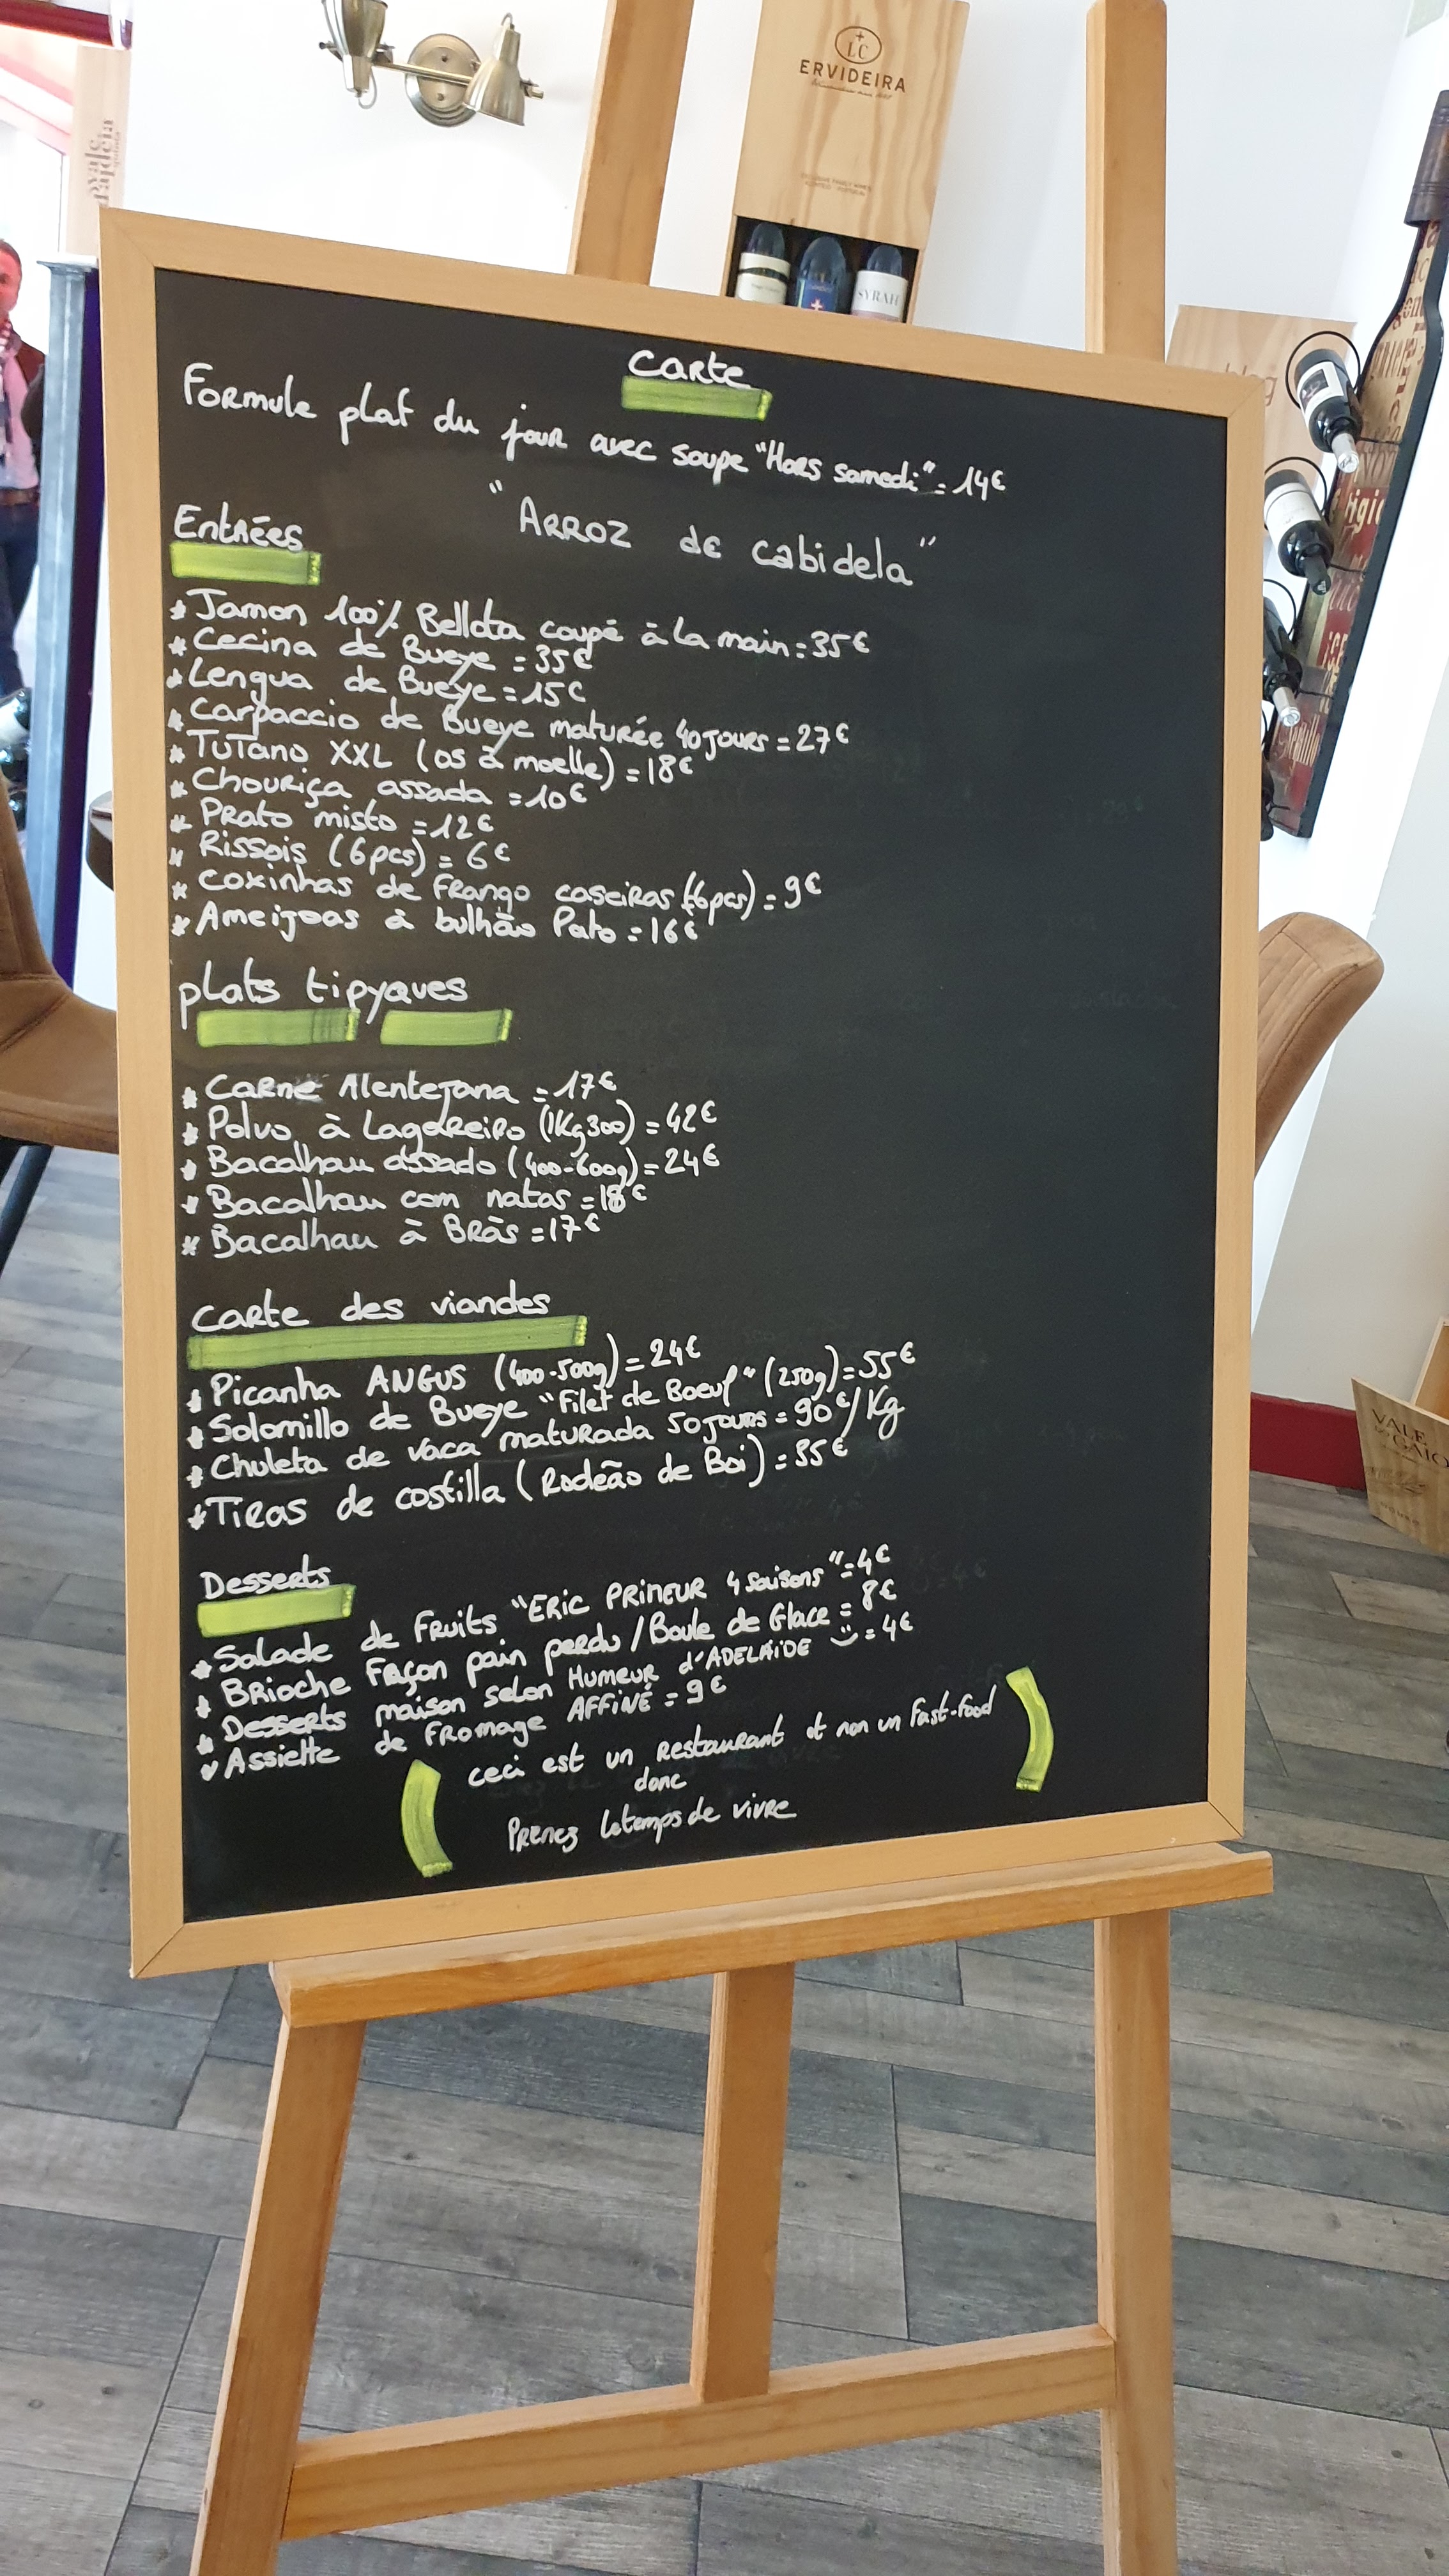 LC
ERVIDEIRA
SYRAH
Carte
Formule plat du jour avec soupe "Hors samedi" = 14€
"Arroz de cabidela"
Entrées
* Jamon 100% Bellota coupé à la main = 35€
* Cecina de Bueye = 35€
* Lengua de Bueye = 15€
* Carpaccio de Bueye maturée 40 jours = 27€
* Tutano XXL (os à moelle) = 18€
* Chouriça assada = 10€
* Prato misto = 12€
* Rissois (6pcs) = 6€
* Coxinhas de Frango caseiras (6pcs) = 9€
* Ameijoas à bulhão Pato = 16€
plats tipyques
* Carne Alentejana = 17€
* Polvo à Lagareiro (1Kg300) = 42€
* Bacalhau assado (400-600g) = 24€
* Bacalhau com natas = 18€
* Bacalhau à Brãs = 17€
Carte des viandes
* Picanha ANGUS (400-500g) = 24€
* Solomillo de Bueye "Filet de Boeuf" (250g) = 55€
* Chuleta de vaca maturada 50 jours = 90€/Kg
* Tiras de costilla (Rodeão de Boi) = 35€
Desserts
* Salade de Fruits "ERIC PRINEUR 4 saisons" = 4€
* Brioche Façon pain perdu / Boule de Glace = 8€
* Desserts maison selon Humeur d'ADELAIDE = 4€
* Assiette de Fromage AFFINÉ = 9€
ceci est un restaurant et non un Fast-food
donc
Prenez le temps de vivre
VALE